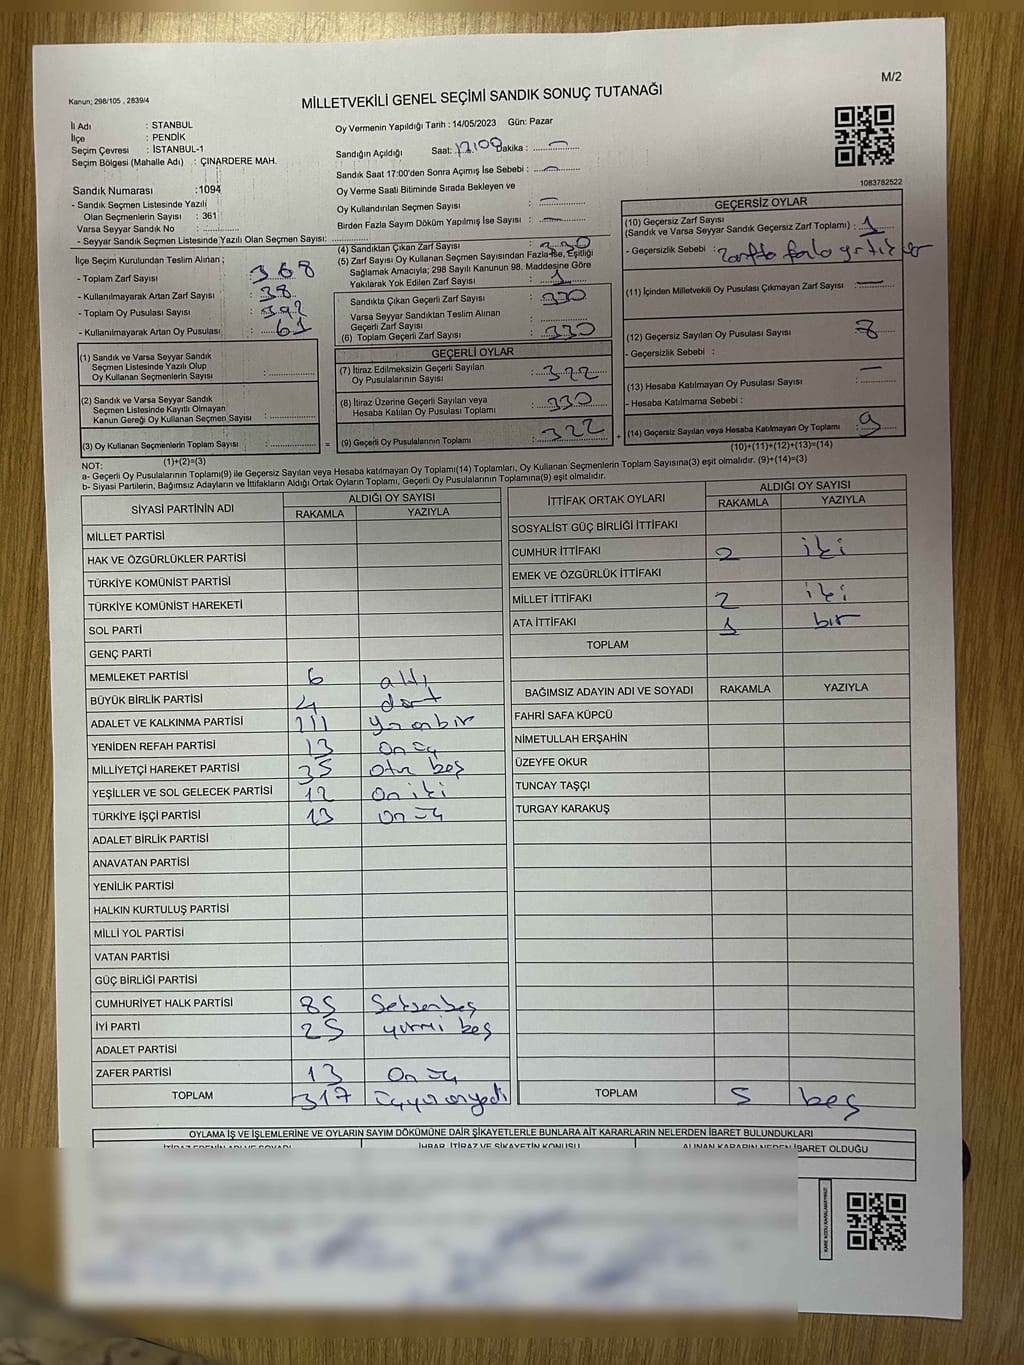 M/2
Kanun; 298/105 , 2839/4
MİLLETVEKİLİ GENEL SEÇİMİ SANDIK SONUÇ TUTANAĞI
İl Adı : STANBUL
İlçe : PENDİK
Seçim Çevresi : İSTANBUL-1
Seçim Bölgesi (Mahalle Adı) : ÇINARDERE MAH.
Sandık Numarası :1094
- Sandık Seçmen Listesinde Yazılı
Olan Seçmenlerin Sayısı : 361
Varsa Seyyar Sandık No :
- Seyyar Sandık Seçmen Listesinde Yazılı Olan Seçmen Sayısı:
Oy Vermenin Yapıldığı Tarih : 14/05/2023 Gün: Pazar
Sandığın Açıldığı Saat: 17.00 Dakika : —
Sandık Saat 17:00'den Sonra Açımış İse Sebebi : —
Oy Verme Saati Bitiminde Sırada Bekleyen ve
Oy Kullandırılan Seçmen Sayısı : —
Birden Fazla Sayım Döküm Yapılmış İse Sayısı : —
1083782522
İlçe Seçim Kurulundan Teslim Alınan ;
- Toplam Zarf Sayısı : 368
- Kullanılmayarak Artan Zarf Sayısı : 38
- Toplam Oy Pusulası Sayısı : 392
- Kullanılmayarak Artan Oy Pusulası : 61
(1) Sandık ve Varsa Seyyar Sandık
Seçmen Listesinde Yazılı Olup
Oy Kullanan Seçmenlerin Sayısı :
(2) Sandık ve Varsa Seyyar Sandık
Seçmen Listesinde Kayıtlı Olmayan
Kanun Gereği Oy Kullanan Seçmen Sayısı :
(3) Oy Kullanan Seçmenlerin Toplam Sayısı :
(1)+(2)=(3)
(4) Sandıktan Çıkan Zarf Sayısı : 330
(5) Zarf Sayısı Oy Kullanan Seçmen Sayısından Fazla İse, Eşitliği
Sağlamak Amacıyla; 298 Sayılı Kanunun 98. Maddesine Göre
Yakılarak Yok Edilen Zarf Sayısı : 1
Sandıkta Çıkan Geçerli Zarf Sayısı : 330
Varsa Seyyar Sandıktan Teslim Alınan
Geçerli Zarf Sayısı :
(6) Toplam Geçerli Zarf Sayısı : 330
GEÇERLİ OYLAR
(7) İtiraz Edilmeksizin Geçerli Sayılan
Oy Pusulalarının Sayısı : 322
(8) İtiraz Üzerine Geçerli Sayılan veya
Hesaba Katılan Oy Pusulası Toplamı : 330
(9) Geçerli Oy Pusulalarının Toplamı : 322
GEÇERSİZ OYLAR
(10) Geçersiz Zarf Sayısı
(Sandık ve Varsa Seyyar Sandık Geçersiz Zarf Toplamı) : 1
- Geçersizlik Sebebi :
(11) İçinden Milletvekili Oy Pusulası Çıkmayan Zarf Sayısı : —
(12) Geçersiz Sayılan Oy Pusulası Sayısı : 8
- Geçersizlik Sebebi :
(13) Hesaba Katılmayan Oy Pusulası Sayısı : —
- Hesaba Katılmama Sebebi :
(14) Geçersiz Sayılan veya Hesaba Katılmayan Oy Toplamı : 9
(10)+(11)+(12)+(13)=(14)
NOT:
a- Geçerli Oy Pusulalarının Toplamı(9) ile Geçersiz Sayılan veya Hesaba katılmayan Oy Toplamı(14) Toplamları, Oy Kullanan Seçmenlerin Toplam Sayısına(3) eşit olmalıdır. (9)+(14)=(3)
b- Siyasi Partilerin, Bağımsız Adayların ve İttifakların Aldığı Ortak Oyların Toplamı, Geçerli Oy Pusulalarının Toplamına(9) eşit olmalıdır.
SİYASİ PARTİNİN ADI ALDIĞI OY SAYISI
RAKAMLA YAZIYLA
MİLLET PARTİSİ
HAK VE ÖZGÜRLÜKLER PARTİSİ
TÜRKİYE KOMÜNİST PARTİSİ
TÜRKİYE KOMÜNİST HAREKETİ
SOL PARTİ
GENÇ PARTİ
MEMLEKET PARTİSİ 6 altı
BÜYÜK BİRLİK PARTİSİ 4 dört
ADALET VE KALKINMA PARTİSİ 111 yüzonbir
YENİDEN REFAH PARTİSİ 13 on üç
MİLLİYETÇİ HAREKET PARTİSİ 35 otuz beş
YEŞİLLER VE SOL GELECEK PARTİSİ 12 on iki
TÜRKİYE İŞÇİ PARTİSİ 13 on üç
ADALET BİRLİK PARTİSİ
ANAVATAN PARTİSİ
YENİLİK PARTİSİ
HALKIN KURTULUŞ PARTİSİ
MİLLİ YOL PARTİSİ
VATAN PARTİSİ
GÜÇ BİRLİĞİ PARTİSİ
CUMHURİYET HALK PARTİSİ 85 Seksenbeş
İYİ PARTİ 25 yirmi beş
ADALET PARTİSİ
ZAFER PARTİSİ 13 on üç
TOPLAM 317 üçyüz onyedi
İTTİFAK ORTAK OYLARI ALDIĞI OY SAYISI
RAKAMLA YAZIYLA
SOSYALİST GÜÇ BİRLİĞİ İTTİFAKI
CUMHUR İTTİFAKI 2 iki
EMEK VE ÖZGÜRLÜK İTTİFAKI
MİLLET İTTİFAKI 2 iki
ATA İTTİFAKI 1 bir
TOPLAM
BAĞIMSIZ ADAYIN ADI VE SOYADI RAKAMLA YAZIYLA
FAHRİ SAFA KÜPCÜ
NİMETULLAH ERŞAHİN
ÜZEYFE OKUR
TUNCAY TAŞÇI
TURGAY KARAKUŞ
TOPLAM 5 beş
OYLAMA İŞ VE İŞLEMLERİNE VE OYLARIN SAYIM DÖKÜMÜNE DAİR ŞİKAYETLERLE BUNLARA AİT KARARLARIN NELERDEN İBARET BULUNDUKLARI
İTİRAZ EDENİN ADI VE SOYADI İHBAR, İTİRAZ VE ŞİKAYETİN KONUSU ALINAN KARARIN NEDEN İBARET OLDUĞU